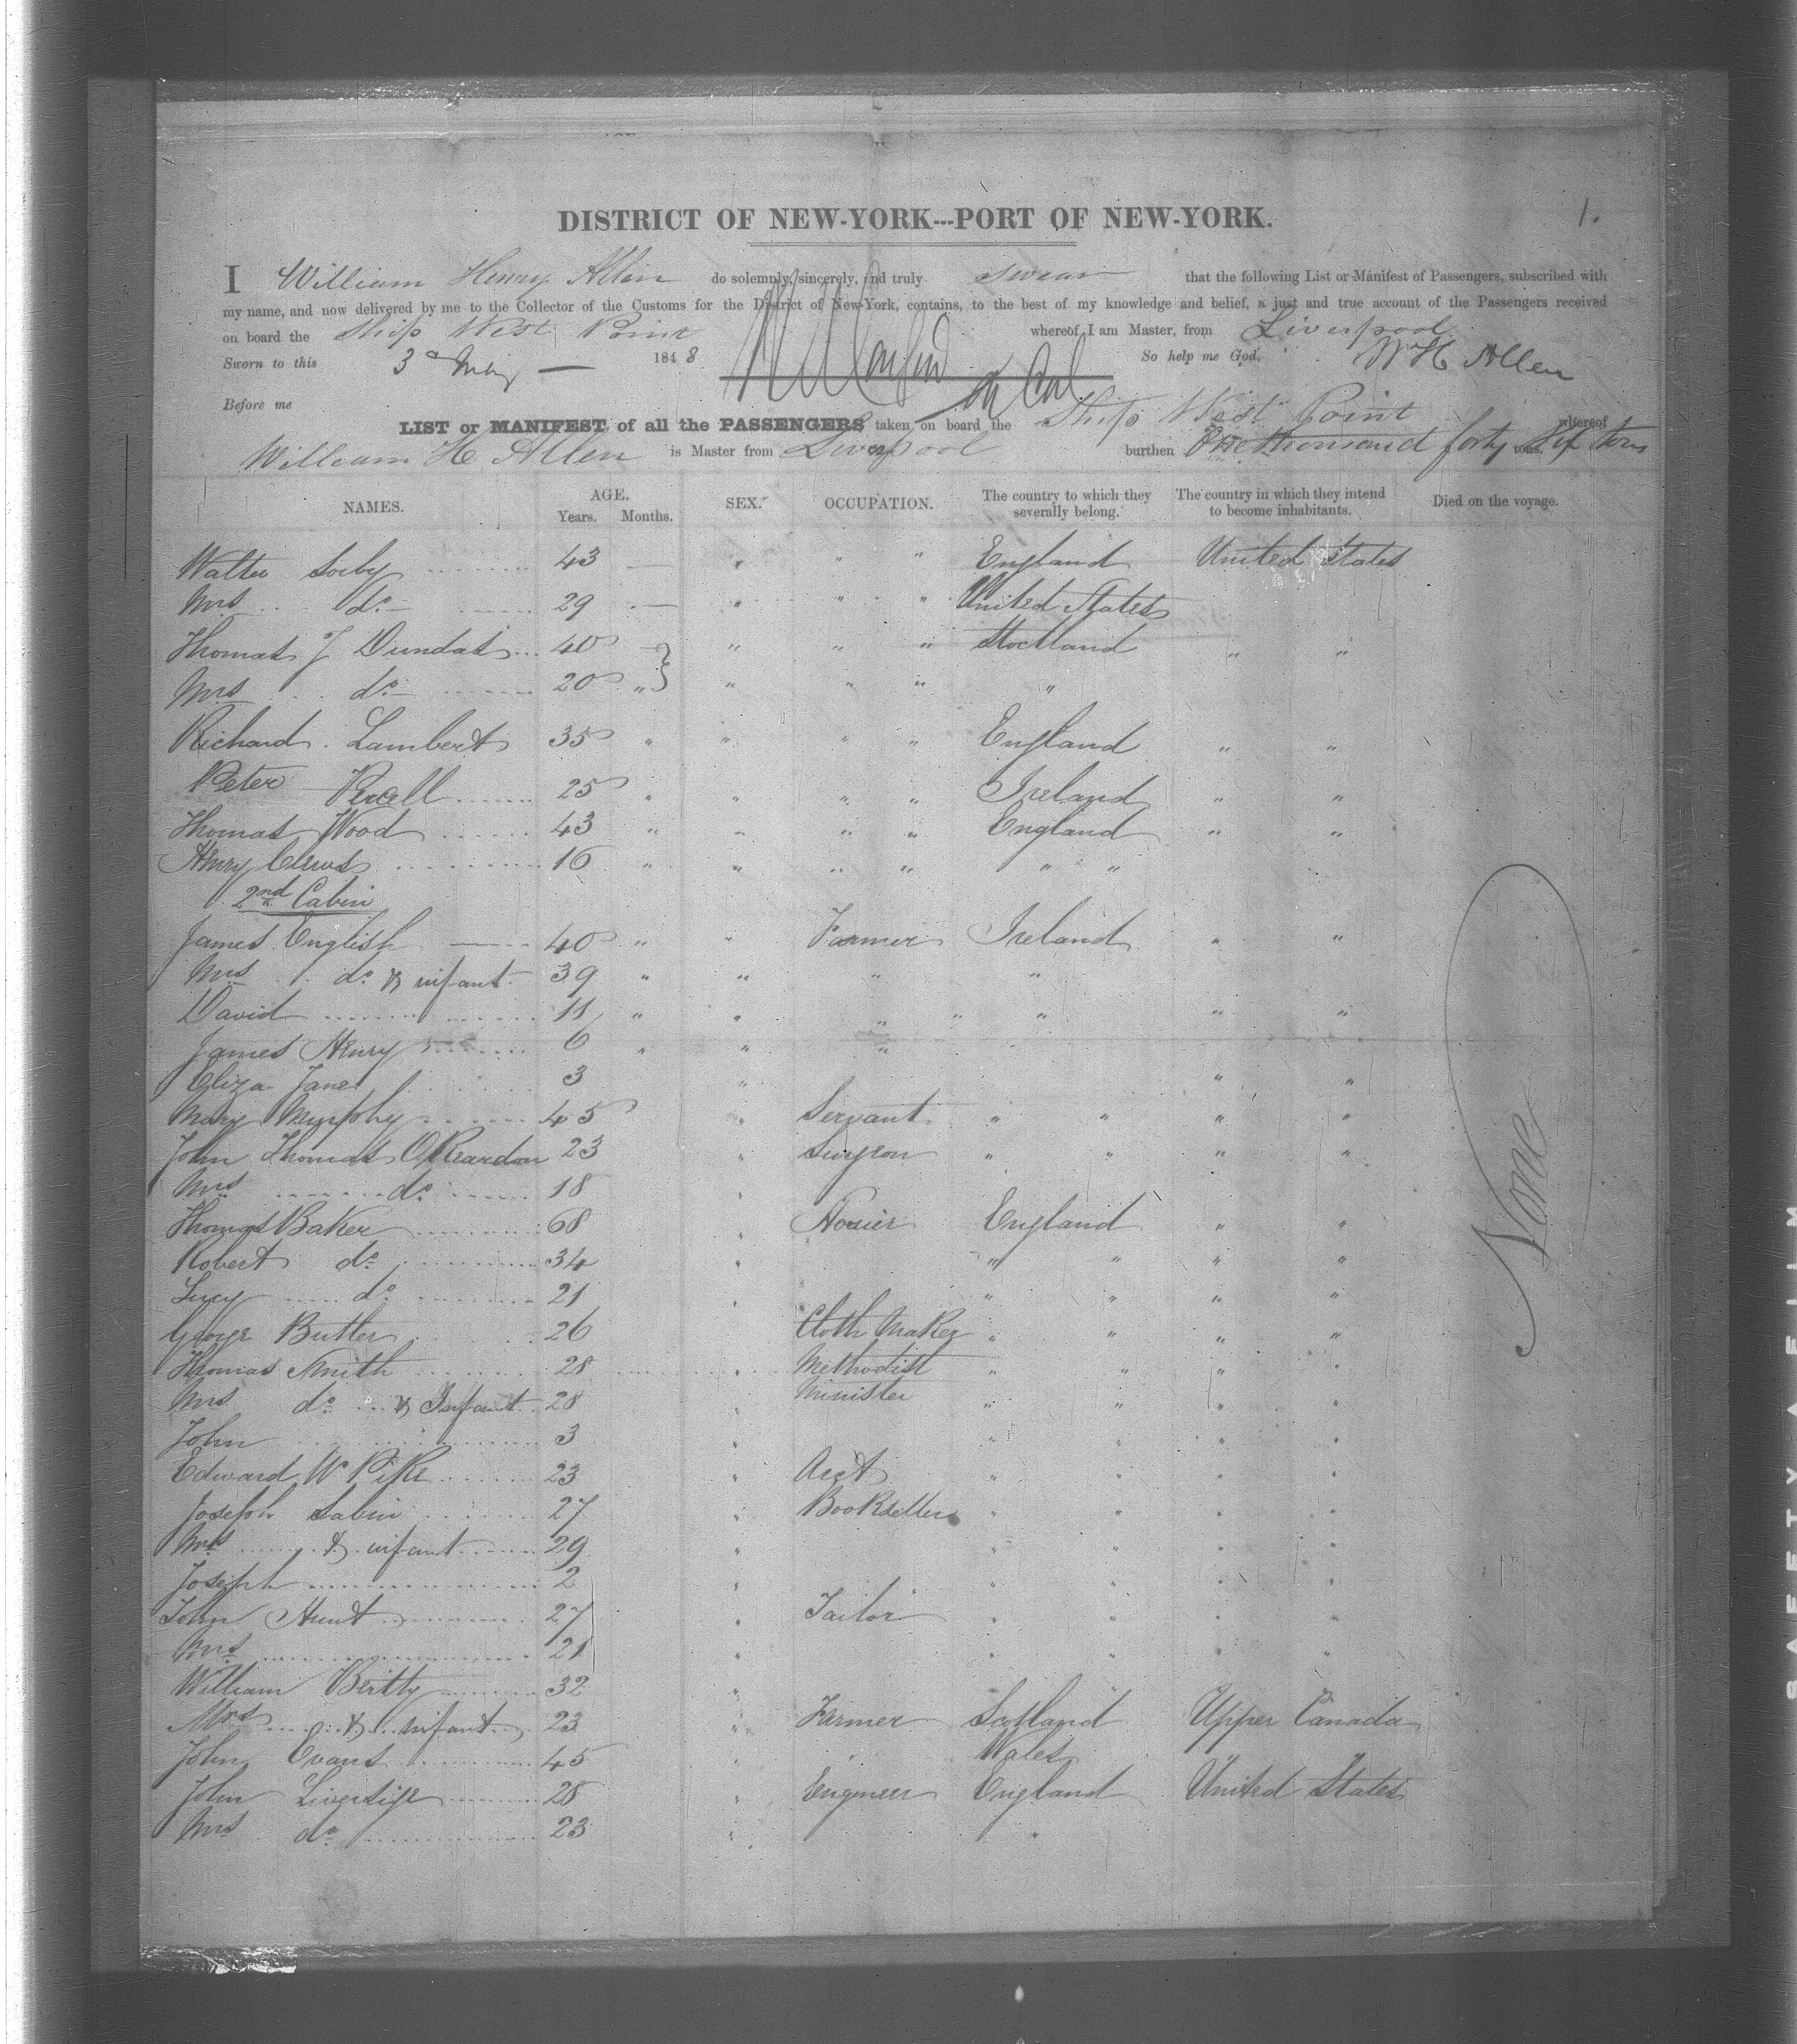 1.
DISTRICT OF NEW-YORK---PORT OF NEW-YORK.
I William Henry Allen do solemnly, sincerely, and truly swear that the following List or Manifest of Passengers, subscribed with
my name, and now delivered by me to the Collector of the Customs for the District of New-York, contains, to the best of my knowledge and belief, a just and true account of the Passengers received
on board the Ship West Point whereof I am Master, from Liverpool
Sworn to this 3d May — 1848 So help me God. W H Allen
Before me
LIST or MANIFEST of all the PASSENGERS taken on board the Ship West Point whereof
William H Allen is Master from Liverpool burthen One thousand forty six tons tons.
NAMES. AGE. Years. Months. SEX. OCCUPATION. The country to which they severally belong. The country in which they intend to become inhabitants. Died on the voyage.
Walter Sorby 43 — " " " England United States
Mrs do 29 — " " " United States
Thomas J Dundas 40 " " " Scotland " "
Mrs do 20 " " " " "
Richard Lambert 35 " " " " England " "
Peter 25 " " " " Ireland " "
Thomas Wood 43 " " " " England " "
Henry Clews 16 " " " " " "
2nd Cabin
James English 40 " " Farmer Ireland " "
Mrs do & infant 39 " " " "
David 11 " " " " " " "
James Henry 6 " " "
Eliza Jane 3 " " "
Mary Murphy 45 " Servant " " " "
John Thomas O'Reardon 23 " Surgeon " " " "
Mrs do 18 "
Thomas Baker 68 " Hosier England " "
Robert do 34 " " " " "
Lucy do 21 " " " " "
George Butler 26 Cloth Maker " " " "
Thomas Smith 28 " Methodist " " " "
Mrs do & Infant 28 " Minister " " " "
John 3 " " " " "
Edward W Pike 23 " " " " "
Joseph Sabin 27 " Bookseller " " " "
Mrs & infant 29 " " " " "
Joseph 2 " " " " "
John Hunt 27 " Tailor " " " "
Mrs 21 " " " " "
William 32 "
Mrs & infant 23 " Farmer Scotland Upper Canada
John Evans 45 " " Wales
John Liversige 28 " Engineer England United States
Mrs do 23 " "
None
SAFETY FILM